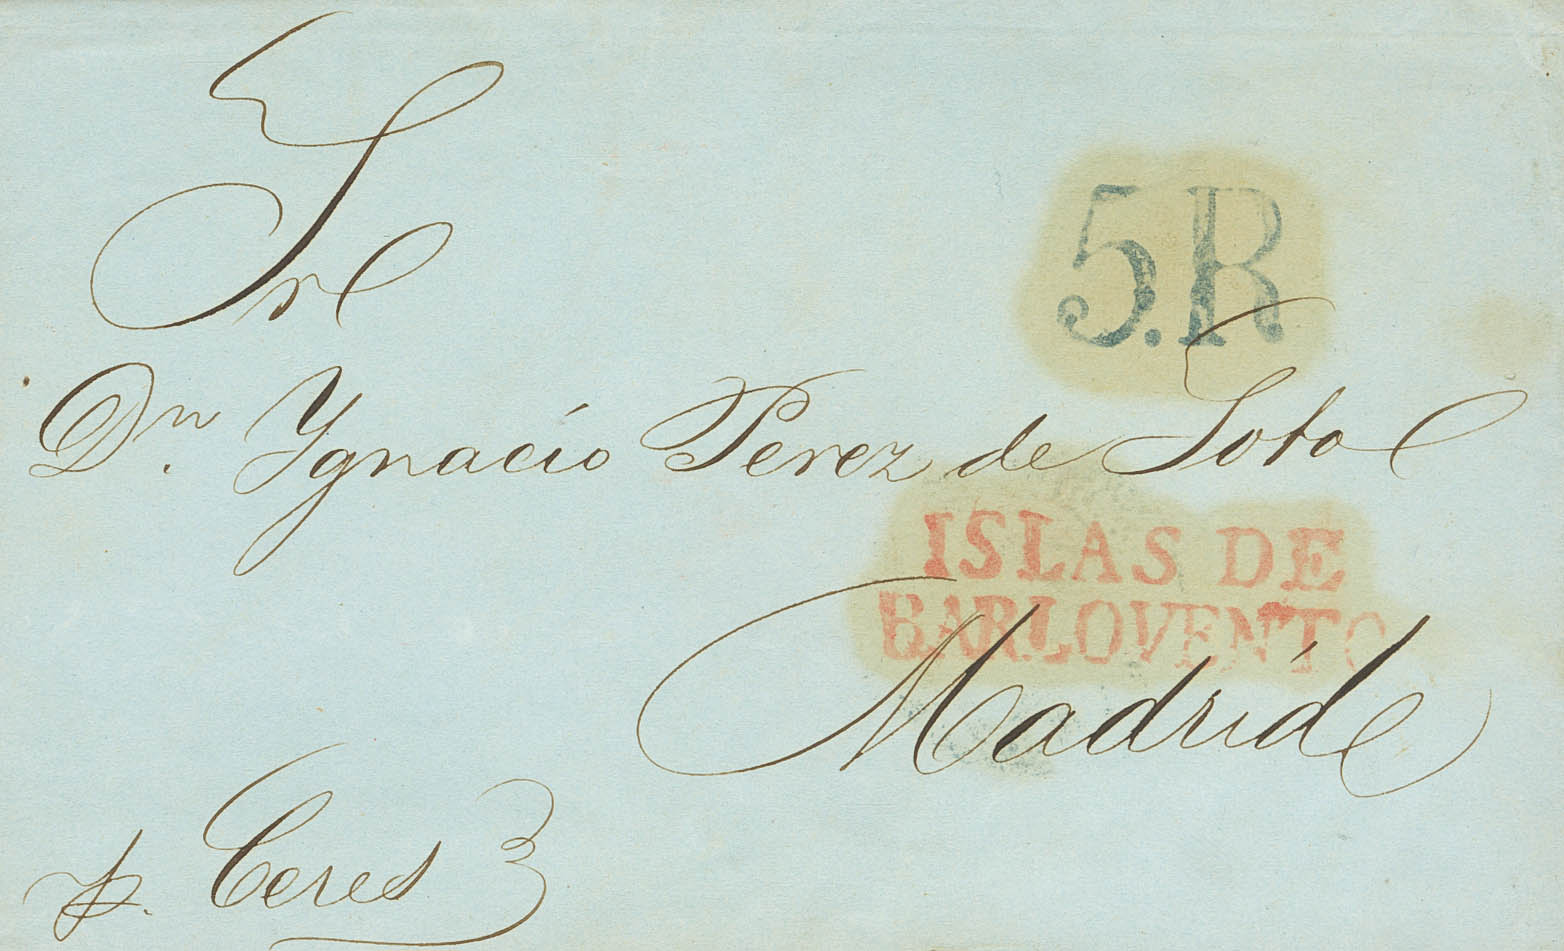 Sr
5.R
Dn. Ygnacio Perez de Soto
ISLAS DE
BARLOVENTO
Madrid
p. Ceres